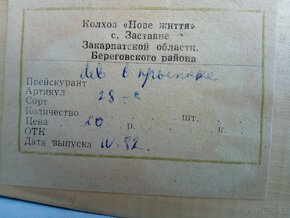 Колхоз «Нове життя»
с. Заставне
Закарпатской области.
Береговского района
Лев в крышке
Прейскурант
Артикул 28-с
Сорт
Количество шт.
Цена 10 р. к.
ОТК
Дата выпуска IV-82